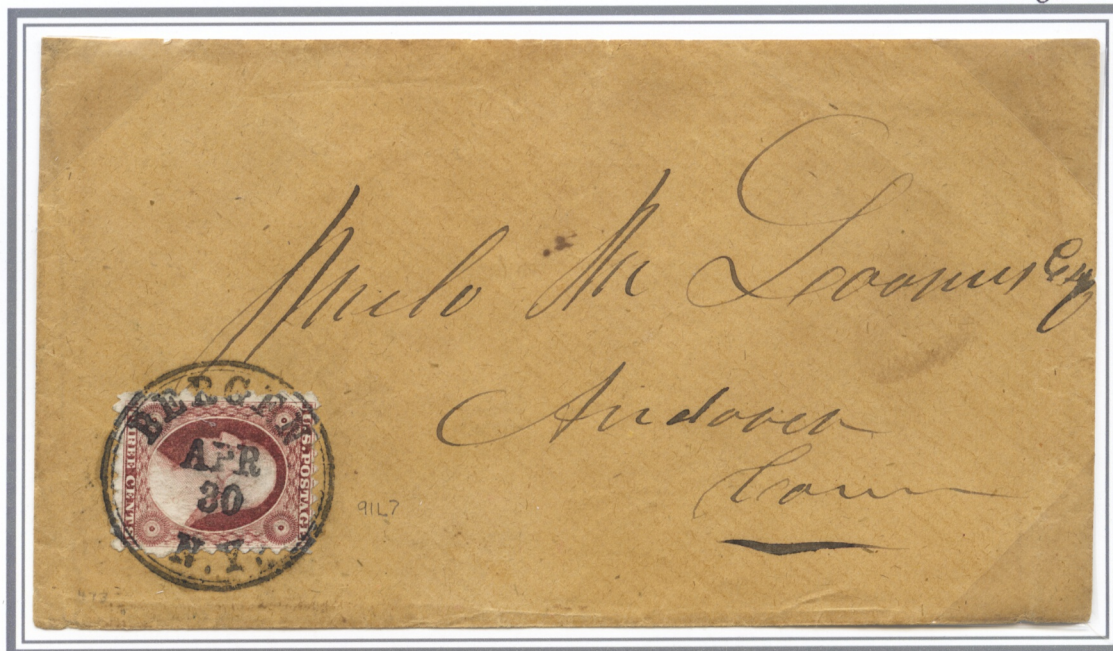 Milo M Loomis Esq
Andover
Conn
BERGEN
APR
30
N.Y.
U.S. POSTAGE
THREE CENTS
91L7